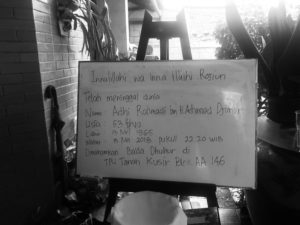 Innalillahi wa Inna Ilaihi Rojiun
Telah meninggal dunia
Nama : Adhi Rachmadi bin H. Achmad Djohar
Usia : 53 tahun
Lahir : Mei 1965
Wafat : Mei 2018 pukul 22.20 WIB
Dimakamkan Bakda Dhuhur di
TPU Tanah Kusir Blok AA 146